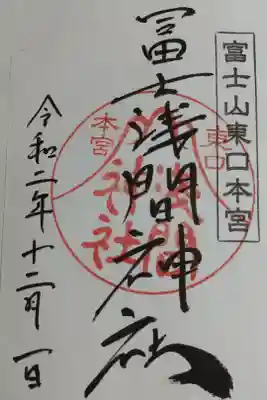 富士山東口本宮
冨士浅間神社
東口
本宮
浅間
神社
令和二年十二月一日